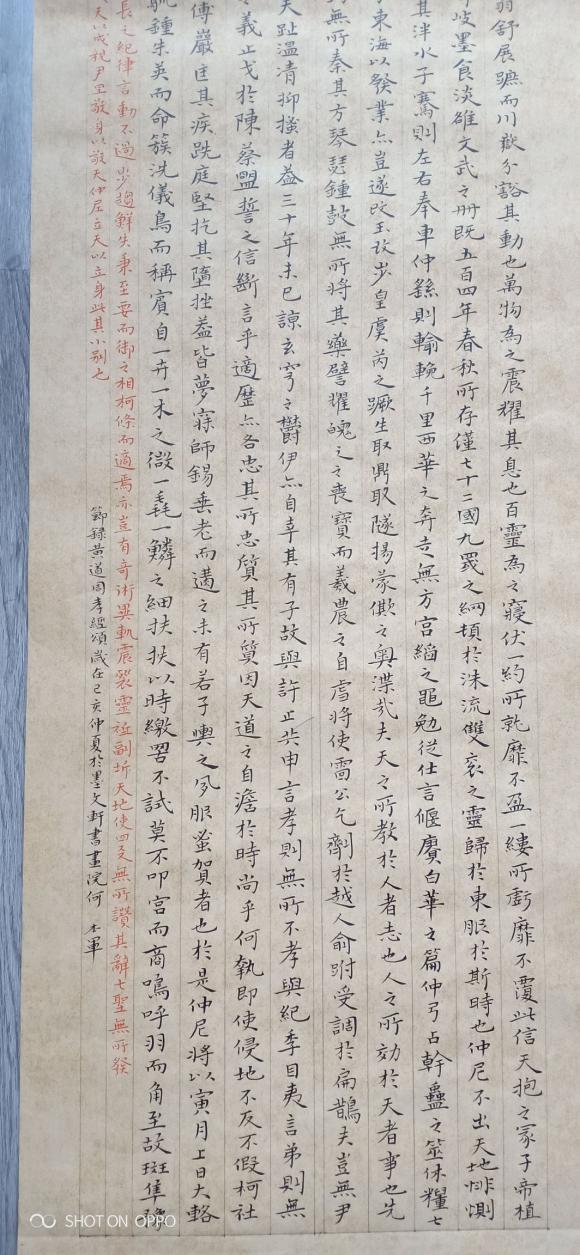 羽舒展蹠而川嶽分豁其動也萬物為之震耀其息也百靈為之寢伏一約所就靡不盈一縷所虧靡不覆此信天抱之冢子帝植
岐墨食淡雖文武之冊既五百四年春秋所存僅七十二國九罭之綱頓於洙流雙袞之靈歸於東服於斯時也仲尼不出天地悱惻
其泮水子騫則左右奉車仲繇則輸輓千里西華之奔走無方宮縚之黽勉從仕言偃賡白華之篇仲弓占幹蠱之筮休糧七
東海以發業亦豈遂改玉改步皇虞芮之蹶生取鼎取隧揚蒙僛之奧渫哉夫天之所教於人者志也人之所効於天者事也先
無所奏其方琴瑟鍾鼓無所將其藥譬耀魄之之喪寶而羲農之自虐將使雷公乞劑於越人俞跗受調於扁鵲夫豈無尹
天趾溫清抑搔者葢三十年未已諒玄穹之欝伊亦自幸其有子故與許止共申言孝則無所不孝與紀季目夷言弟則無
義止戈於陳蔡盟誓之信斷言乎適歷亦各忠其所忠質其所質因天道之自澹於時尚乎何執即使侵地不反不假柯社
傅巖匡其疾跣庭堅扢其墮挫葢皆夢寐師錫垂老而遘之未有若子輿之夙服蚤賀者也於是仲尼將以寅月上日大輅
鍾朱英而命簇洗儀鳥而稱賓自一卉一木之微一毳一鱗之細扶扶以時繳罟不試莫不叩宮而商鳴呼羽而角至故斑隼
長之紀律言動不過步趨鮮失秉至要而御之相柯條而適焉亦豈有奇術異軌震裂靈祉副圻天地使四叐無所讚其辭七聖無所發
天以成規尹里敬身以敬天仲尼立天以立身此其小別也
節錄黃道周孝經頌歲在己亥仲夏於墨文軒書畫院何 本軍
SHOT ON OPPO